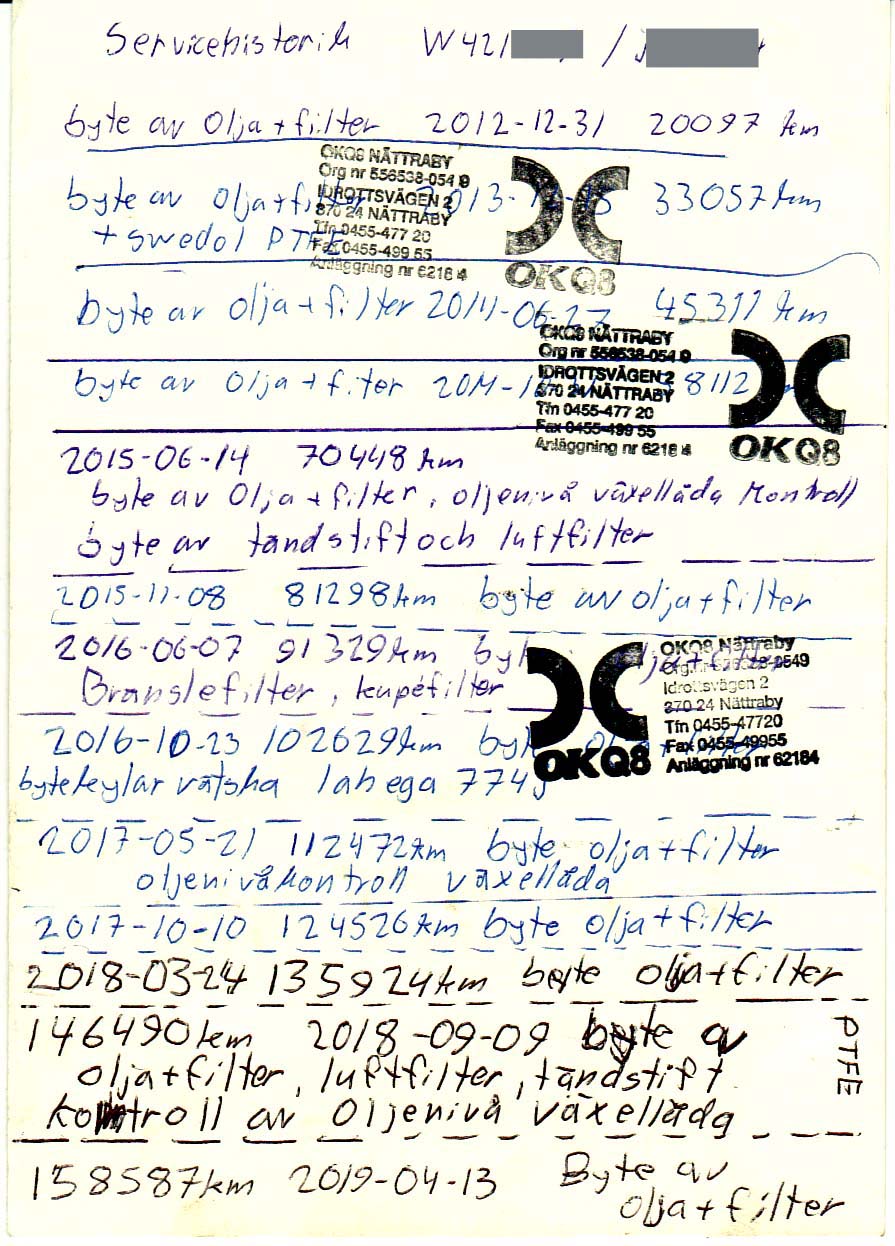 Servicehistorik W421 /
byte av olja + filter 2012-12-31 20097 km
OKQ8 NÄTTRABY
Org nr 556538-0549
IDROTTSVÄGEN 2
370 24 NÄTTRABY
Tfn 0455-477 20
Fax 0455-499 55
Anläggning nr 62184
OKQ8
byte av olja + filter 33057 km
+ swedol PTFE
byte av olja + filter 2014-06-27 45311 km
OKQ8 NÄTTRABY
Org nr 556538-0549
IDROTTSVÄGEN 2
370 24 NÄTTRABY
Tfn 0455-477 20
Fax 0455-499 55
Anläggning nr 62184
OKQ8
byte av olja + filter 8112
2015-06-14 70448 km
byte av olja + filter, oljenivå växellåda kontroll
byte av tändstift och luftfilter
2015-11-08 81298 km byte av olja + filter
2016-06-07 91329 km olja + filter
Bränslefilter, kupéfilter
OKQ8 Nättraby
Org.nr 556538-0549
Idrottsvägen 2
370 24 Nättraby
Tfn 0455-47720
Fax 0455-49955
Anläggning nr 62184
OKQ8
2016-10-23 102629 km
byte kylar vätska lahega 774
2017-05-21 112472 km byte olja + filter
oljenivåkontroll växellåda
2017-10-10 124526 km byte olja + filter
2018-03-24 135924 km byte olja + filter
146490 km 2018-09-09 byte av
olja + filter, luftfilter, tändstift
kontroll av oljenivå växellåda
PTFE
158587 km 2019-04-13 Byte av
olja + filter